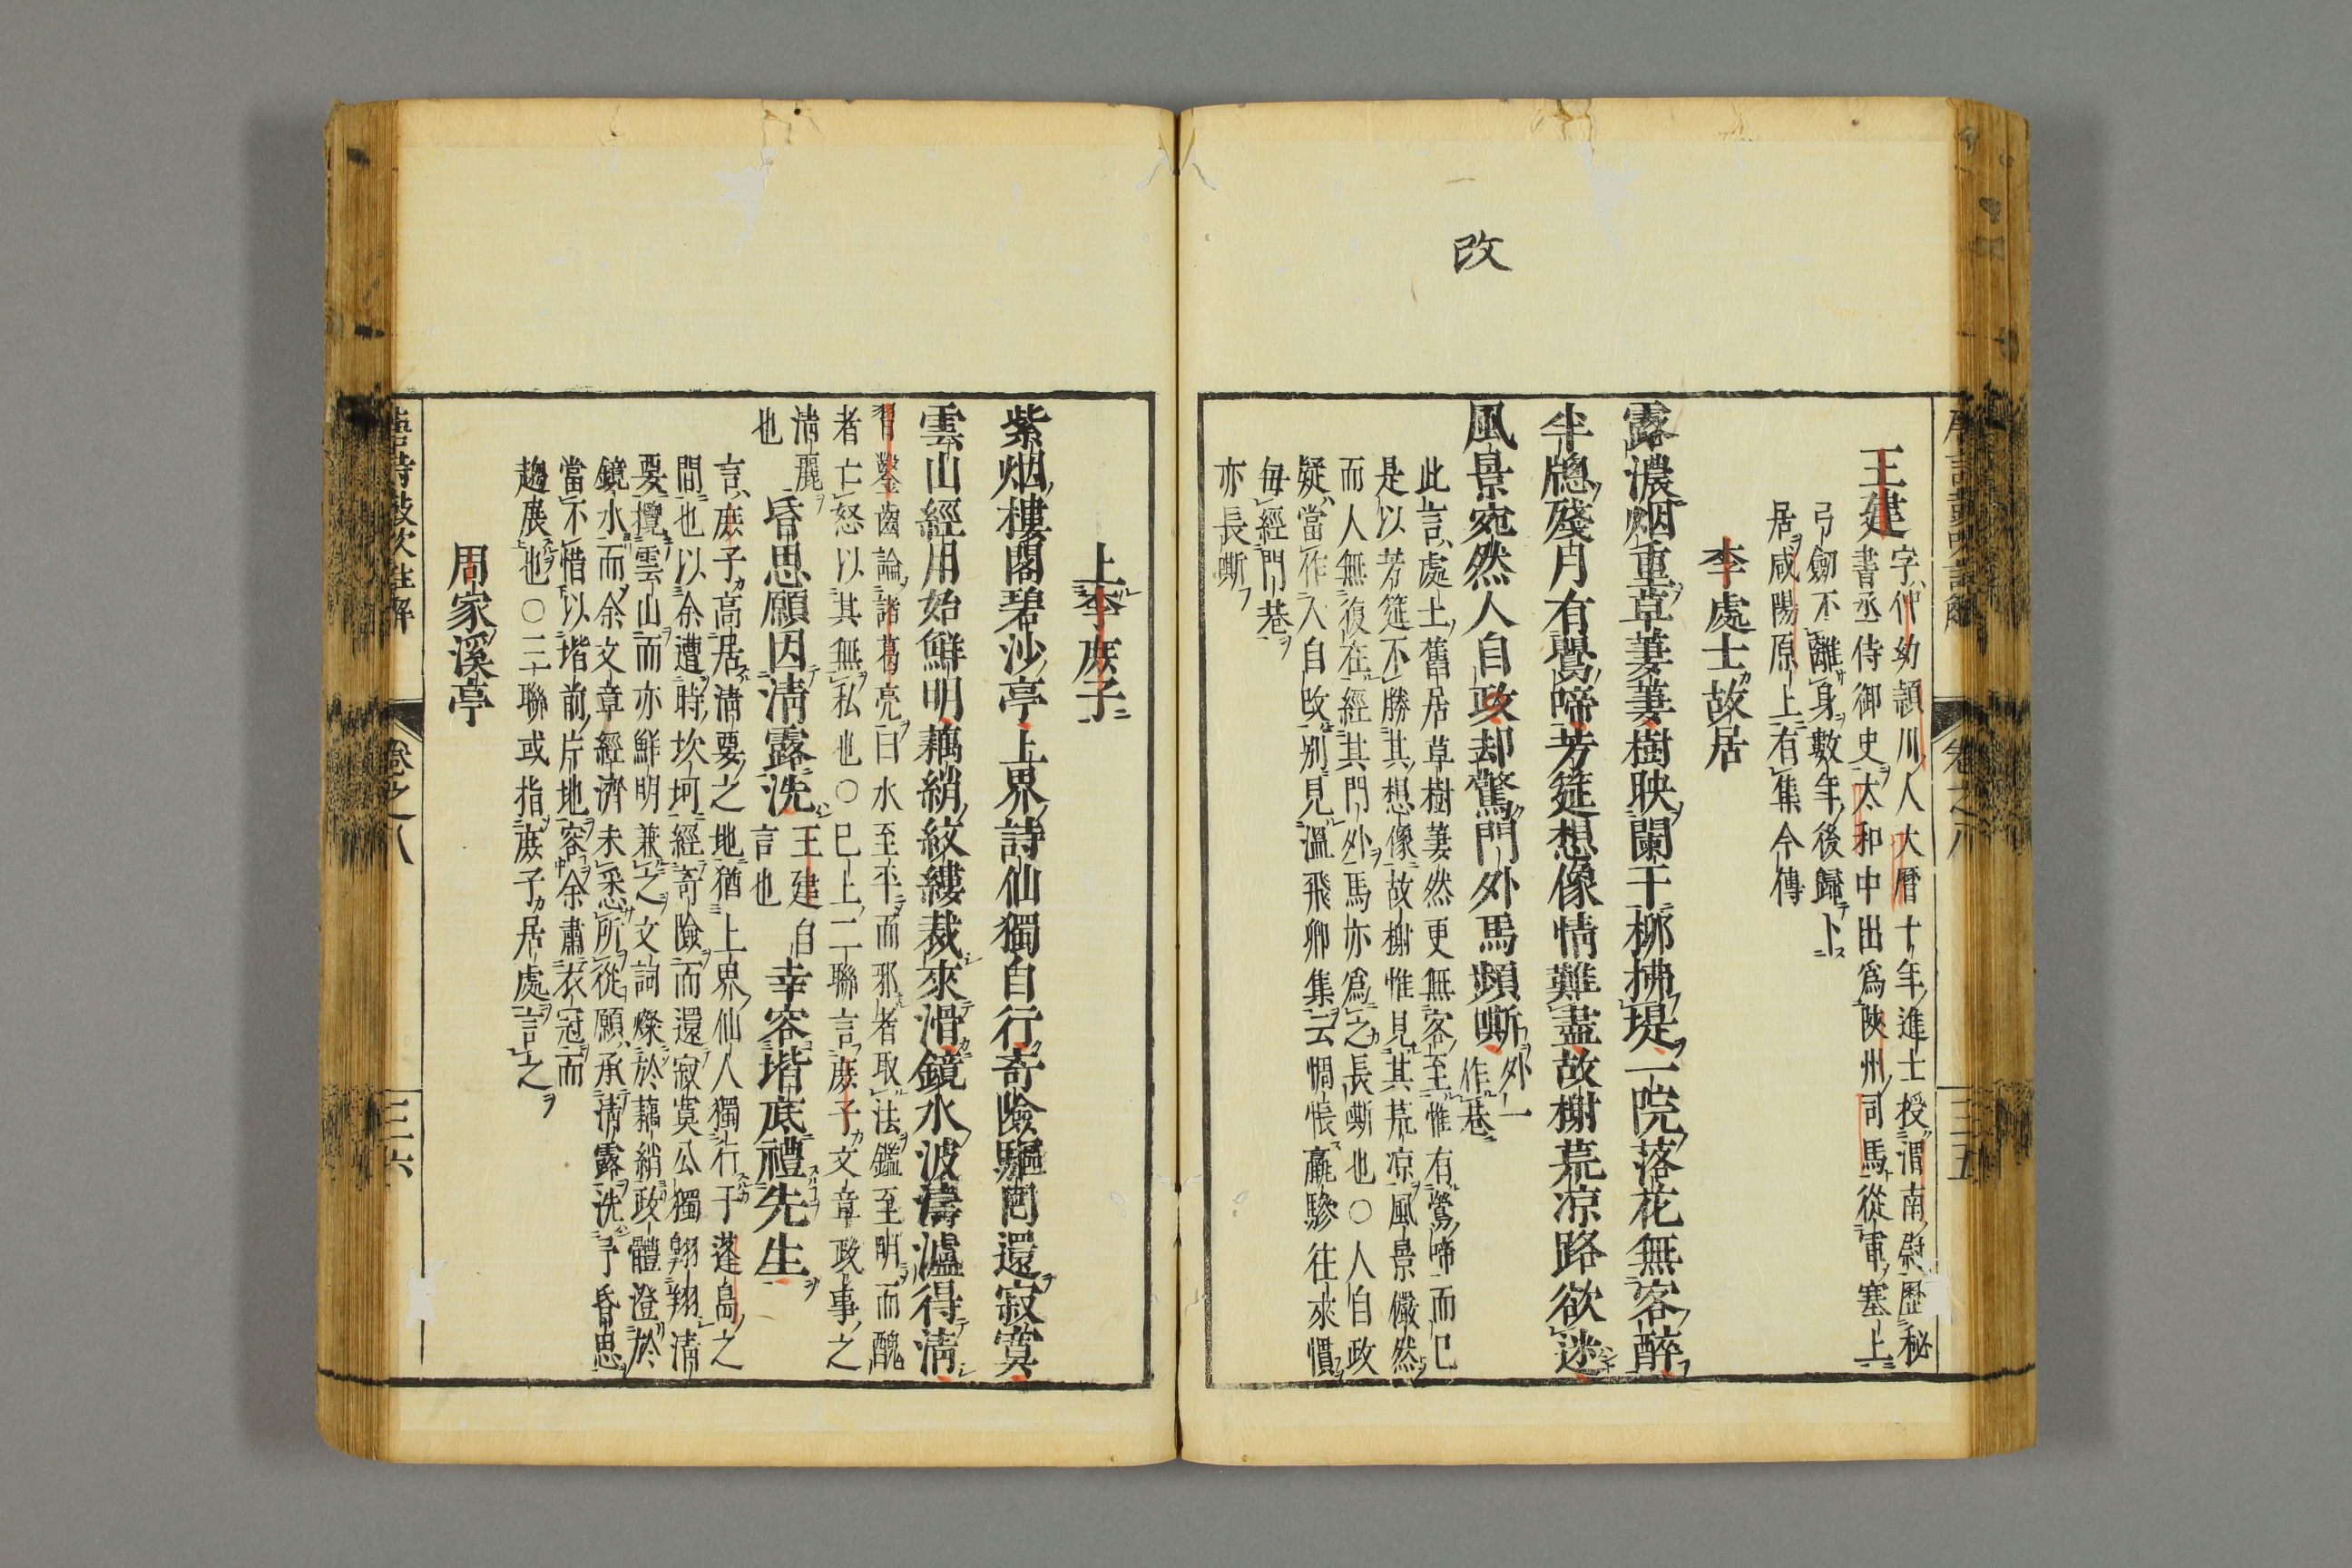 改
王建
字仲幼頴川人大暦十年進士授渭南尉歷秘
書丞侍御史太和中出爲陝州司馬從軍塞上
弓劒不離身數年後歸卜
居咸陽原上有集今傳
李處士故居
露濃烟重草萋萋樹映闌干柳拂堤一院落花無客醉
半牕殘月有鶯啼芳筵想像情難盡故榭荒凉路欲迷
風景宛然人自政却驚門外馬頻嘶
外一
作巷
此言處士舊居草樹萋然更無客至惟有鶯啼而已
是以芳筵不勝其想像故榭惟見其荒凉風景儼然
而人無復在經其門外馬亦爲之長嘶也〇人自政
疑當作人自改別見溫飛卿集云惆悵羸驂往來慣
每經門巷
亦長嘶
上李庶子
紫烟樓閣碧沙亭上界詩仙獨自行奇險驅囘還寂寞
雲山經用始鮮明藕綃紋縷裁來滑鏡水波濤濾得清
習鑿齒論諸葛亮曰水至平而邪者取法鑑至明而醜
者亡怒以其無私也〇已上二聯言庶子文章政事之
清麗
也
昏思願因清露洗
王建自
言也
幸容堦底禮先生
言庶子高居淸要之地猶上界仙人獨行于蓬島之
間也以余遭時坎坷經奇險而還寂寞公獨翱翔淸
要攬雲山而亦鮮明兼之文詞燦於藕綃政體澄於
鏡水而余文章經濟未悉所從願承淸露洗予昏思
當不惜以堦前片地容余肅衣冠而
趨展也〇三聯或指庶子居處言之
周家溪亭
卷之八
三六
卷之八
三五